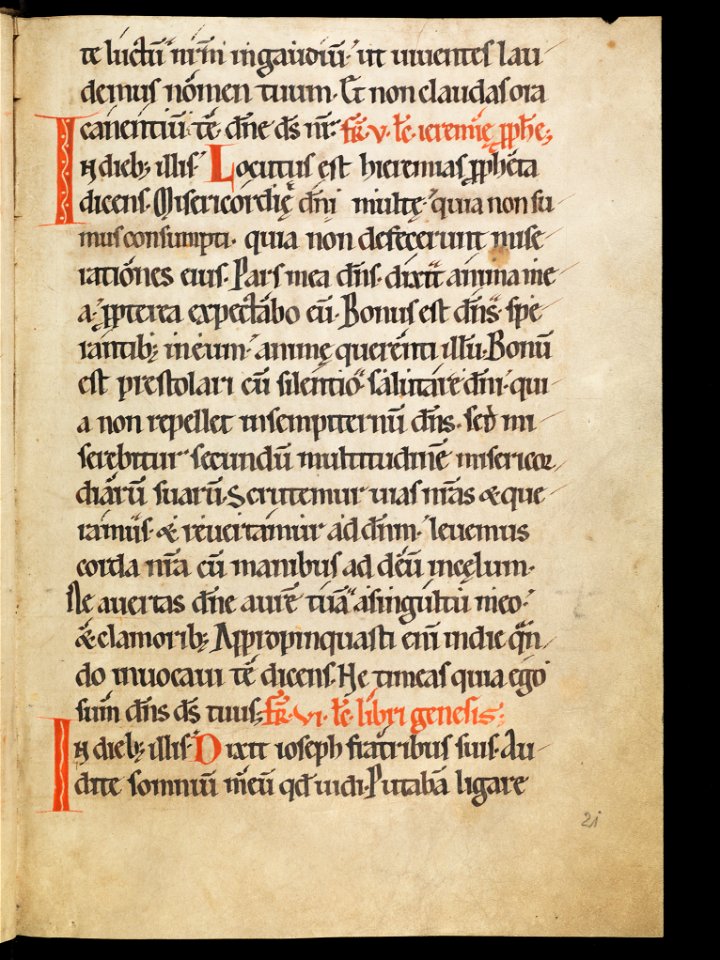 te luctū nr̄m in gaudiū· ut uiuentes lau
demus nomen tuum· Et non claudas ora
canentiū te dn̄e ds̄ nr̄· fr̄· v· lc̄· ieremię ꝓphę·
In dieb; illis· Locutus est hieremias ꝓpheta
dicens· Misericordię dn̄i multę· quia non su
mus consumpti· quia non defecerunt mise
rationes eius· Pars mea dn̄s· dixit anima me
a· ꝓpterea expectabo eū· Bonus est dn̄s· spe
rantib; in eum· animę querenti illū· Bonū
est prestolari cū silentio· salutare dn̄i· qui
a non repellet in sempiternū dn̄s· sed mi
serebitur secundū multitudinē misericor
diarū suarū· Scrutemur uias nr̄as & que
ramus· & reuertamur ad dn̄m· leuemus
corda nr̄a cū manibus ad dēū in cęlum·
Ne auertas dn̄e aurē tuā a singultu meo·
& clamorib; Appropinquasti eni in die qn̄
do inuocaui te dicens· Ne timeas quia ego
sum dn̄s ds̄ tuus; fr̄· vi· lc̄· libri genesis;
In dieb; illis· Dixit ioseph fratribus suis· Au
dite somniū meū qd̄ uidi· Putabā ligare
21